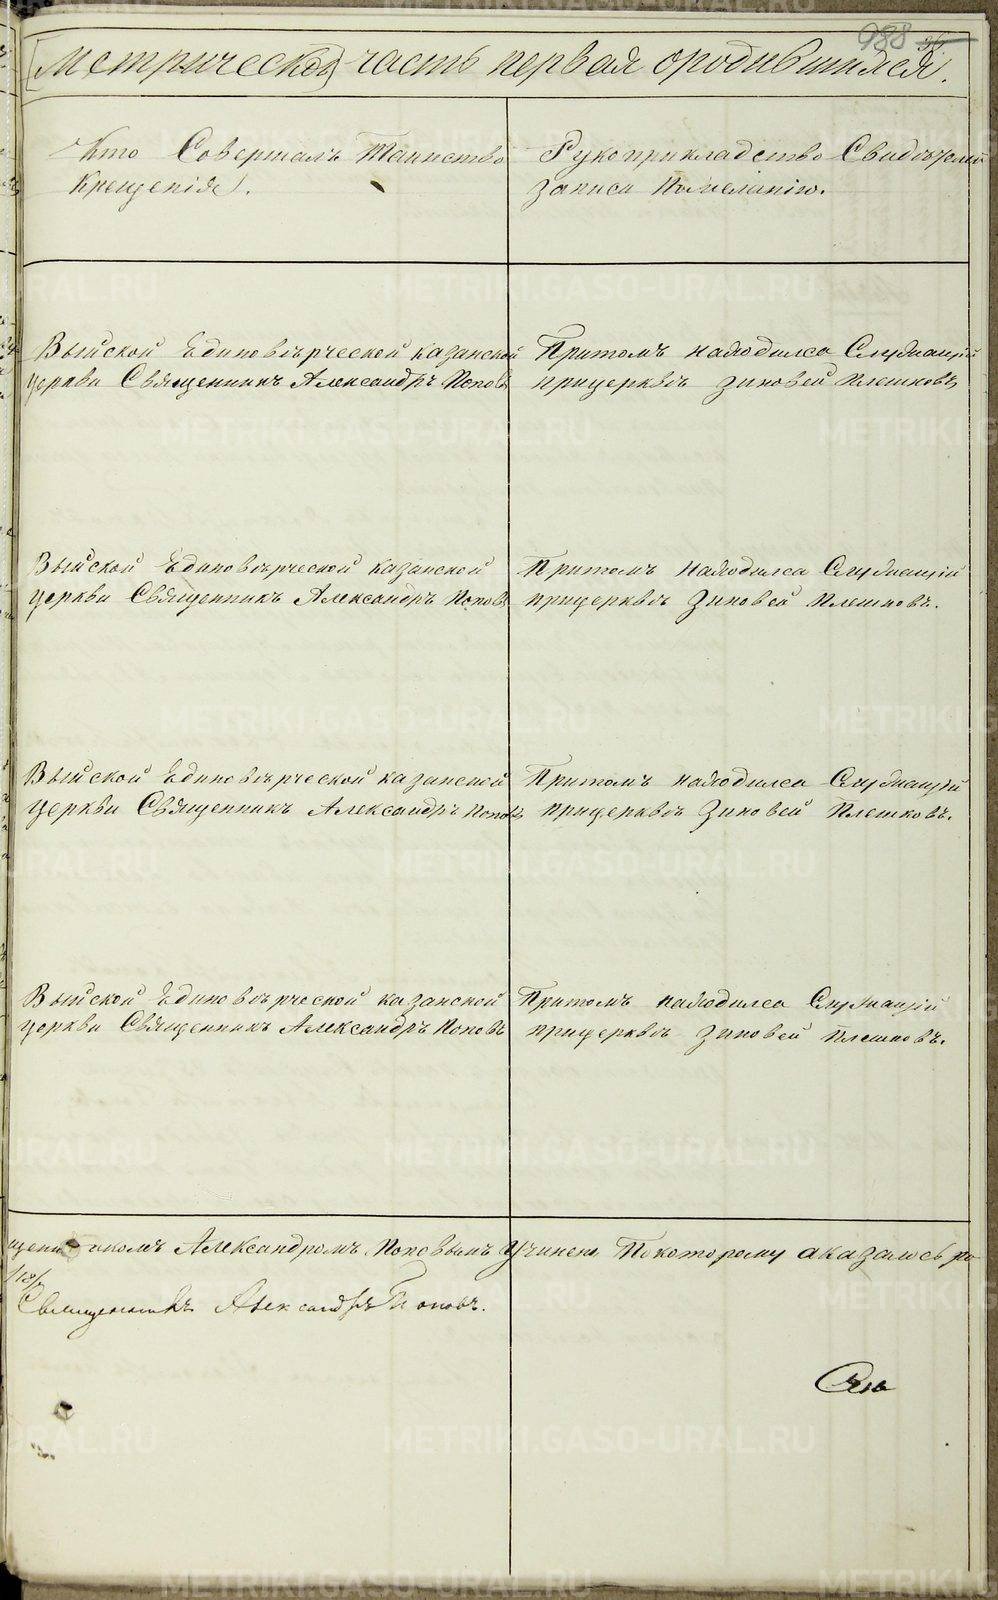 988 36
Метрической часть первая ородившихся.
Кто Совершалъ Таинство
Крещенія.
Рукоприкладство Свидѣтелей
записи Пожеланію.
Выйской Единовѣрческой казанской
церкви Священникъ Александръ Поповъ
Притомъ находился Служащій
прицерквѣ Зиновей Плешковъ
Выйской Единовѣрческой казанской
церкви Священникъ Александръ Поповъ
Притомъ находился Служащій
прицерквѣ Зиновей Плешковъ.
Выйской Единовѣрческой казанской
церкви Священникъ Александръ Поповъ
Притомъ находился Служащій
прицерквѣ Зиновей Плешковъ.
Выйской Единовѣрческой казанской
церкви Священникъ Александръ Поповъ
Притомъ находился Служащій
прицерквѣ Зиновей Плешковъ.
Александромъ Поповымъ Учинено Покоторому аказалось ро
Священникъ Александръ Поповъ.
METRIKI.GASO-URAL.RU